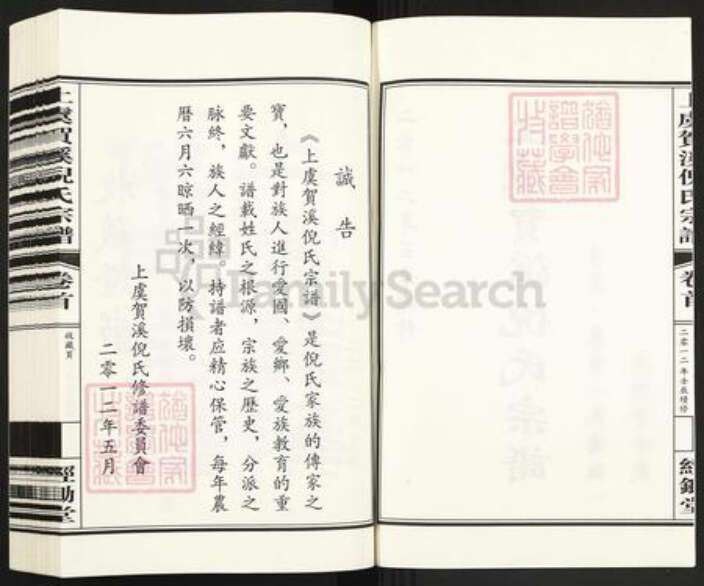 上虞賀溪倪氏宗譜
卷首
二零一二年壬辰增修
誡告
《上虞賀溪倪氏宗譜》是倪氏家族的傳家之
寶,也是對族人進行愛國、愛鄉、愛族教育的重
要文獻。譜載姓氏之根源,宗族之歷史,分派之
脉終,族人之經緯。持譜者应精心保管,每年農
曆六月六晾晒一次,以防損壞。
上虞賀溪倪氏修譜委員會
二零一二年五月
上虞賀溪倪氏宗譜
卷首
收藏頁
經勤堂
FamilySearch